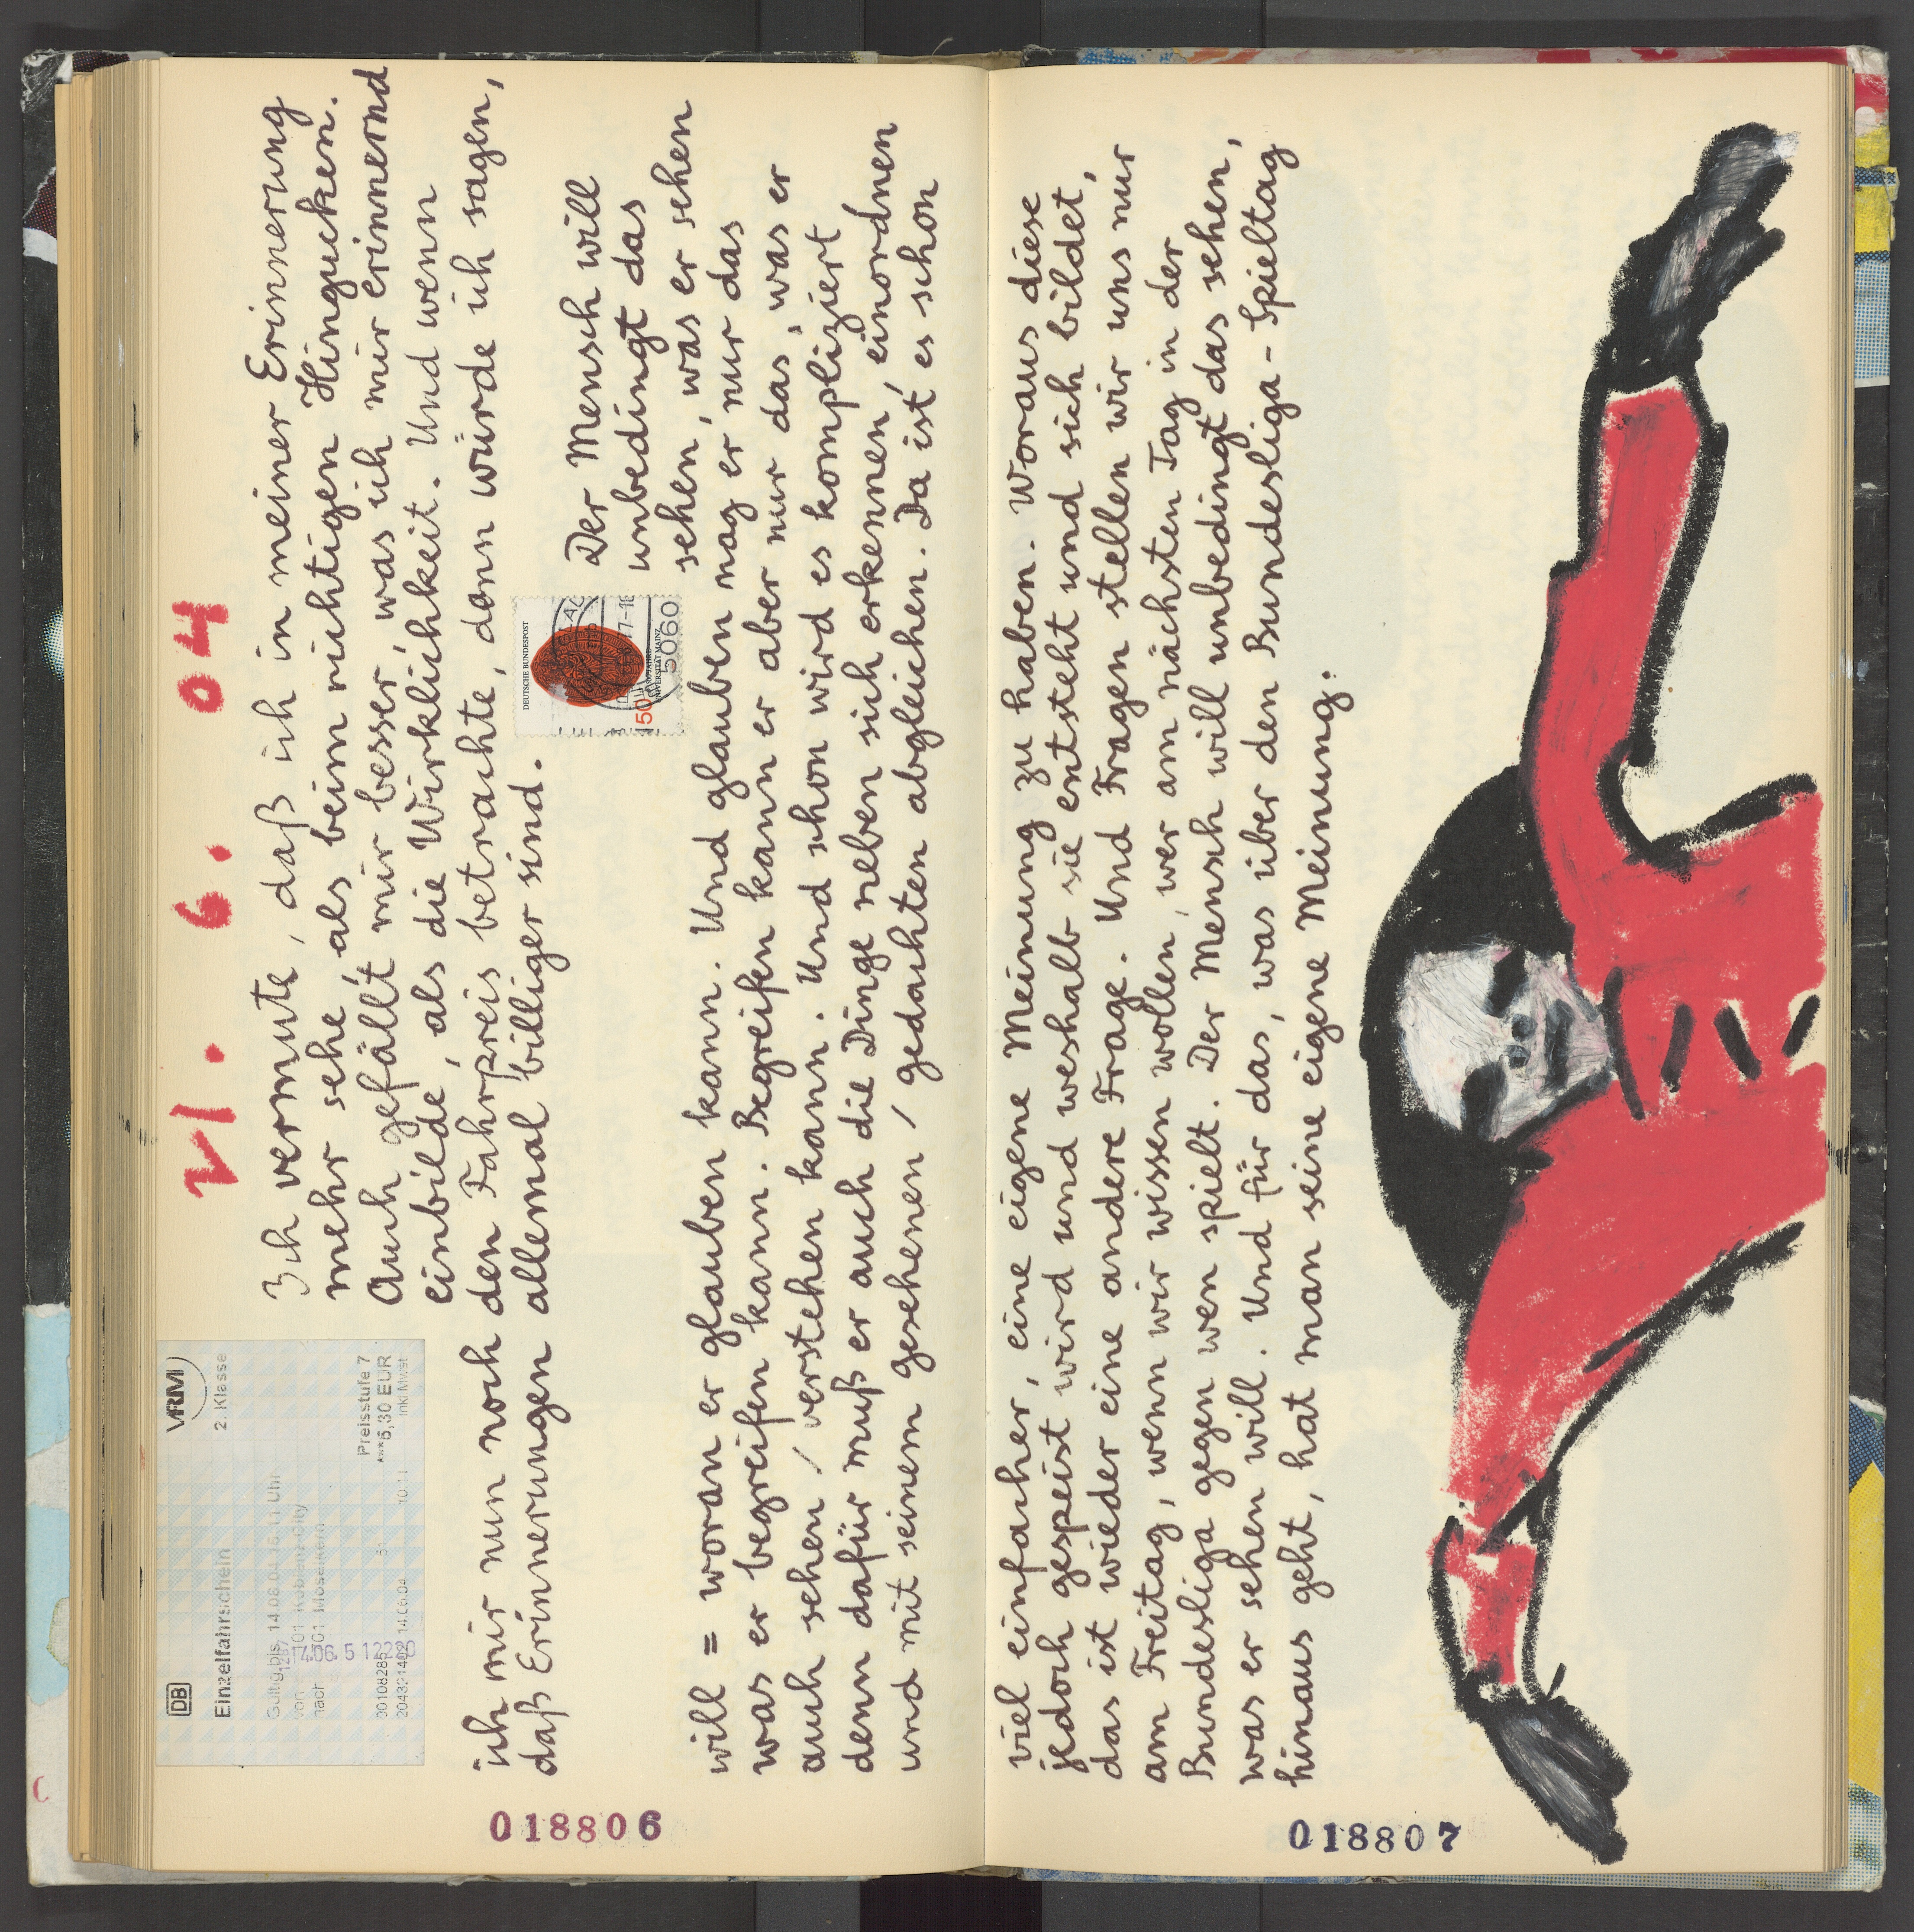 21. 6. 04
DB
VRM
Einzelfahrschein
2. Klasse
Preisstufe 7
***5,30 EUR
inkl.Mwst
Ich vermute, daß ich in meiner Erinnerung
mehr sehe, als beim richtigen Hingucken.
Auch gefällt mir besser, was ich mir erinnernd
einbilde, als die Wirklichkeit. Und wenn
ich mir nun noch den Fahrpreis betrachte, dann würde ich sagen,
daß Erinnerungen allemal billiger sind.
DEUTSCHE BUNDESPOST
Der Mensch will
unbedingt das
sehen, was er sehen
will = woran er glauben kann. Und glauben mag er nur das
was er begreifen kann. Begreifen kann er aber nur das, was er
auch sehen / verstehen kann. Und schon wird es kompliziert
denn dafür muß er auch die Dinge neben sich erkennen, einordnen
und mit seinem gesehenen / gedachten abgleichen. Da ist es schon
018806
viel einfacher, eine eigene Meinung zu haben. Woraus diese
jedoch gespeist wird und weshalb sie entsteht und sich bildet,
das ist wieder eine andere Frage. Und Fragen stellen wir uns nur
am Freitag, wenn wir wissen wollen, wer am nächsten Tag in der
Bundesliga gegen wen spielt. Der Mensch will unbedingt das sehen,
was er sehen will. Und für das, was über den Bundesliga-Spieltag
hinaus geht, hat man seine eigene Meinung.
018807